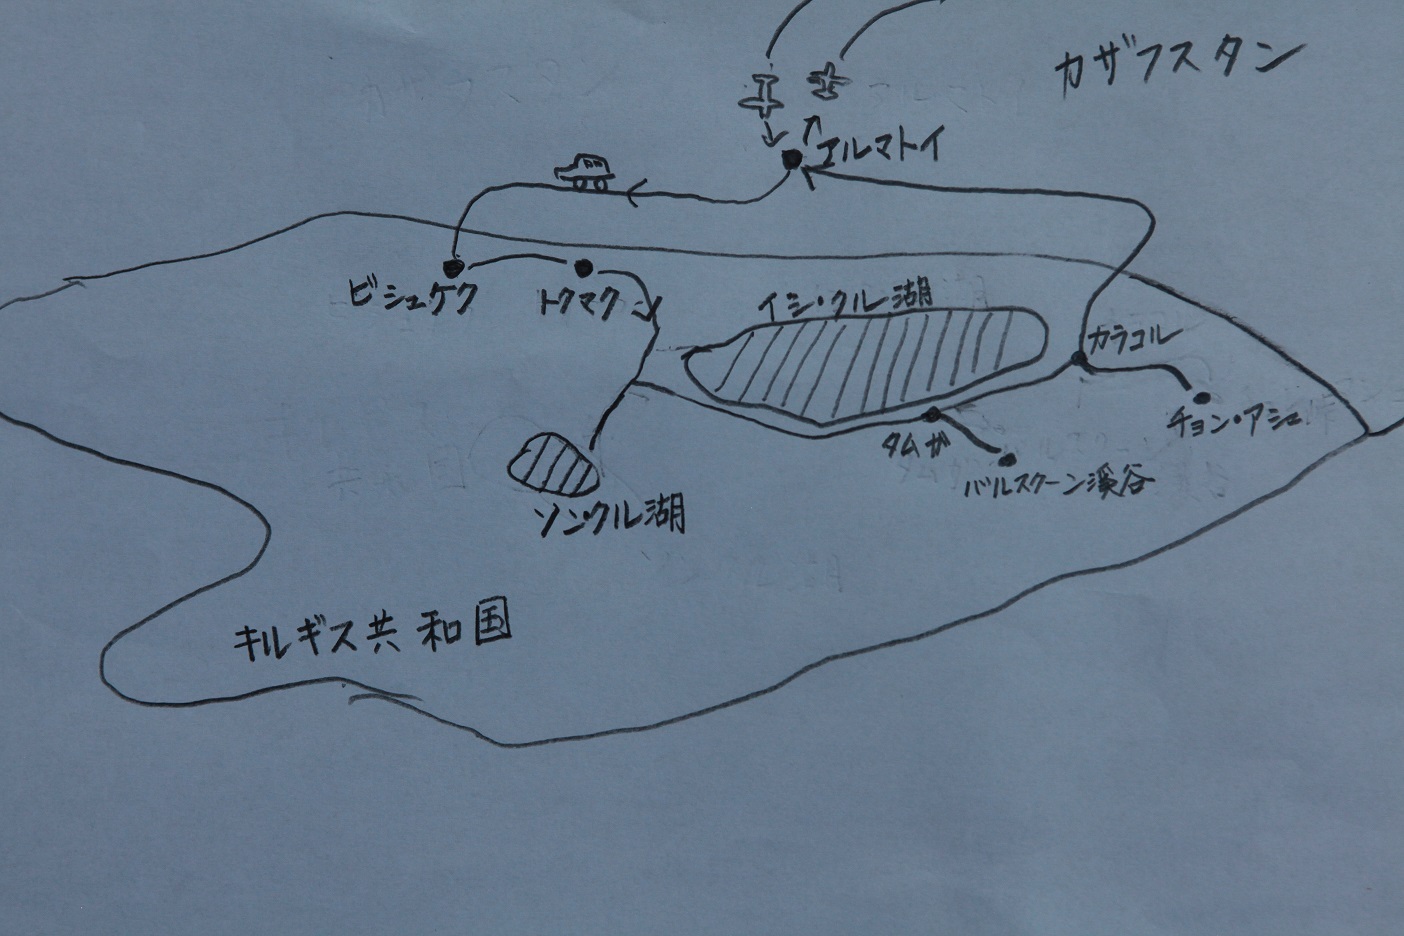 カザフスタン
アルマトイ
ビシュケク
トクマク
イシ・クル湖
カラコル
チョン・アシュ
タムガ
バルスクーン渓谷
ソン・クル湖
キルギス共和国